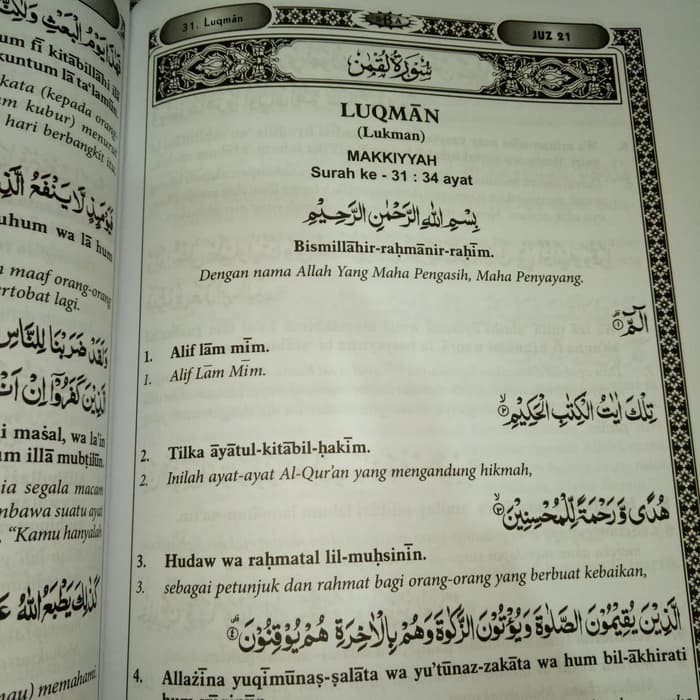 هٰذَا يَوْمُ الْبَعْثِ وَلٰكِنَّ
um fī kitābillāhi ilā
kuntum lā ta'lamūn.
kata (kepada orang-
m kubur) menurut
hari berbangkit itu,
فَيَوْمَئِذٍ لَّا يَنْفَعُ الَّذِيْنَ
uhum wa lā hum
maaf orang-orang
ertobat lagi.
وَلَقَدْ ضَرَبْنَا لِلنَّاسِ
الَّذِيْنَ كَفَرُوْٓا اِنْ اَنْتُمْ
i maśal, wa la'in
um illā mubṭilūn.
ia segala macam
mbawa suatu ayat
, "Kamu hanyalah
كَذٰلِكَ يَطْبَعُ اللّٰهُ عَلٰى
au) memahami.
31. Luqmān
JUZ 21
سُوْرَةُ لُقْمٰن
LUQMĀN
(Lukman)
MAKKIYYAH
Surah ke - 31 : 34 ayat
بِسْمِ اللّٰهِ الرَّحْمٰنِ الرَّحِيْمِ
Bismillāhir-raḥmānir-raḥīm.
Dengan nama Allah Yang Maha Pengasih, Maha Penyayang.
الۤمّۤ ۝١
1. Alif lām mīm.
1. Alif Lām Mīm.
تِلْكَ اٰيٰتُ الْكِتٰبِ الْحَكِيْمِ ۝٢
2. Tilka āyātul-kitābil-ḥakīm.
2. Inilah ayat-ayat Al-Qur'an yang mengandung hikmah,
هُدًى وَّرَحْمَةً لِّلْمُحْسِنِيْنَ ۝٣
3. Hudaw wa raḥmatal lil-muḥsinīn.
3. sebagai petunjuk dan rahmat bagi orang-orang yang berbuat kebaikan,
الَّذِيْنَ يُقِيْمُوْنَ الصَّلٰوةَ وَيُؤْتُوْنَ الزَّكٰوةَ وَهُمْ بِالْاٰخِرَةِ هُمْ يُوْقِنُوْنَ ۝٤
4. Allażīna yuqīmūnaṣ-ṣalāta wa yu'tūnaz-zakāta wa hum bil-ākhirati
hum yūqinūn.